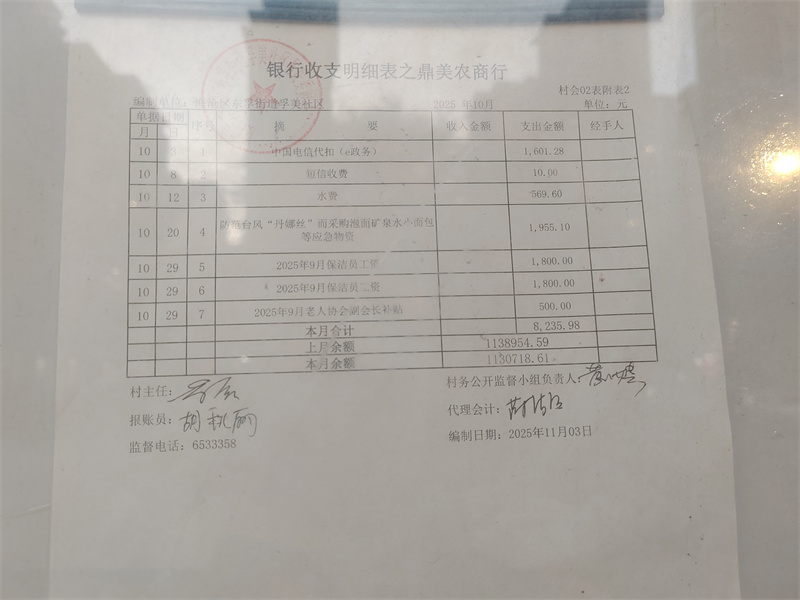 银行收支明细表之鼎美农商行
村会02表附表2
编制单位：东孚街道孚美社区 2025 年10月 单位：元
单据日期 序号 摘 要 收入金额 支出金额 经手人
月 日
10 5 1 中国电信代扣（e政务） 1,601.28
10 8 2 短信收费 10.00
10 12 3 水费 569.60
10 20 4 防范台风“丹娜丝”而采购泡面矿泉水小面包 1,955.10
等应急物资
10 29 5 2025年9月保洁员工资 1,800.00
10 29 6 2025年9月保洁员工资 1,800.00
10 29 7 2025年9月老人协会副会长补贴 500.00
本月合计 8,235.98
上月余额 1138954.59
本月余额 1130718.61
村主任： 村务公开监督小组负责人：
报账员： 代理会计：
监督电话：6533358 编制日期：2025年11月03日